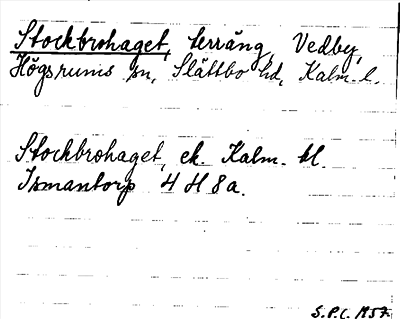 Stockbrohaget, terräng, Vedby,
Högsrums sn, Slättbo hd, Kalm. l.
Stockbrohaget, ek. Kalm. bl.
Ismantorp 4 H 8 a.
S.P.C. 1957